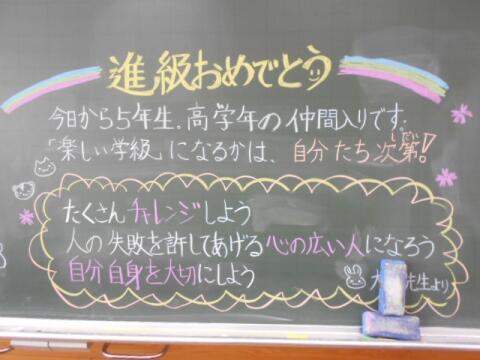 進級おめでとう
今日から5年生。高学年の仲間入りです。
「楽しい学級」になるかは、自分たち次第!
しだい
たくさんチャレンジしよう
人の失敗を許してあげる心の広い人になろう
自分自身を大切にしよう
先生より